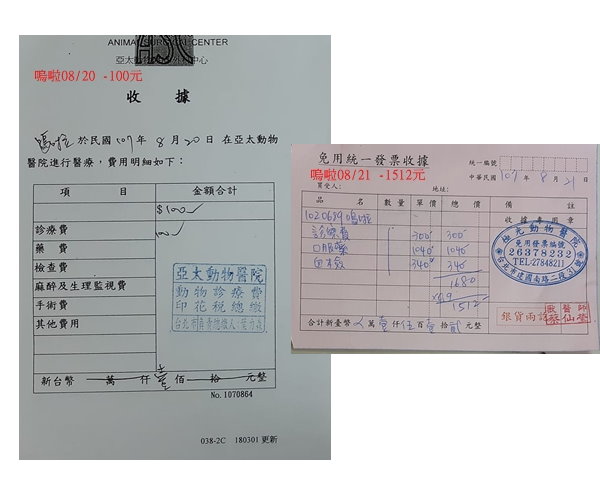 ANIMAL SURGICAL CENTER
亞太動物
中心
嗚啦08/20 -100元
收 據
於民國 107 年 8 月 20 日 在亞太動物
醫院進行醫療，費用明細如下：
項 目 金額合計
$100
診療費 100
藥 費
檢查費
麻醉及生理監視費
手術費
其他費用
亞太動物醫院
動物診療費
印花稅總繳
新台幣 萬 仟 壹 佰 拾 元整
No. 1070864
038-2C 180301 更新
免用統一發票收據
統一編號
嗚啦08/21 -1512元
中華民國 107 年 8 月 21 日
買受人： 地址：
品 名 數 量 單 價 總 價 備 註
1020689 嗚啦 收據專用章
診療費 1 300 300
口服藥 1 1040 1040
340 340
1680
×0.9
1512
極光動物醫院
免用發票編號
26378232
TEL:27848211
台北市建國南路二段
銀貨兩訖
獸醫師
合計新臺幣 萬 壹 仟 伍 佰 壹 拾 貳 元整